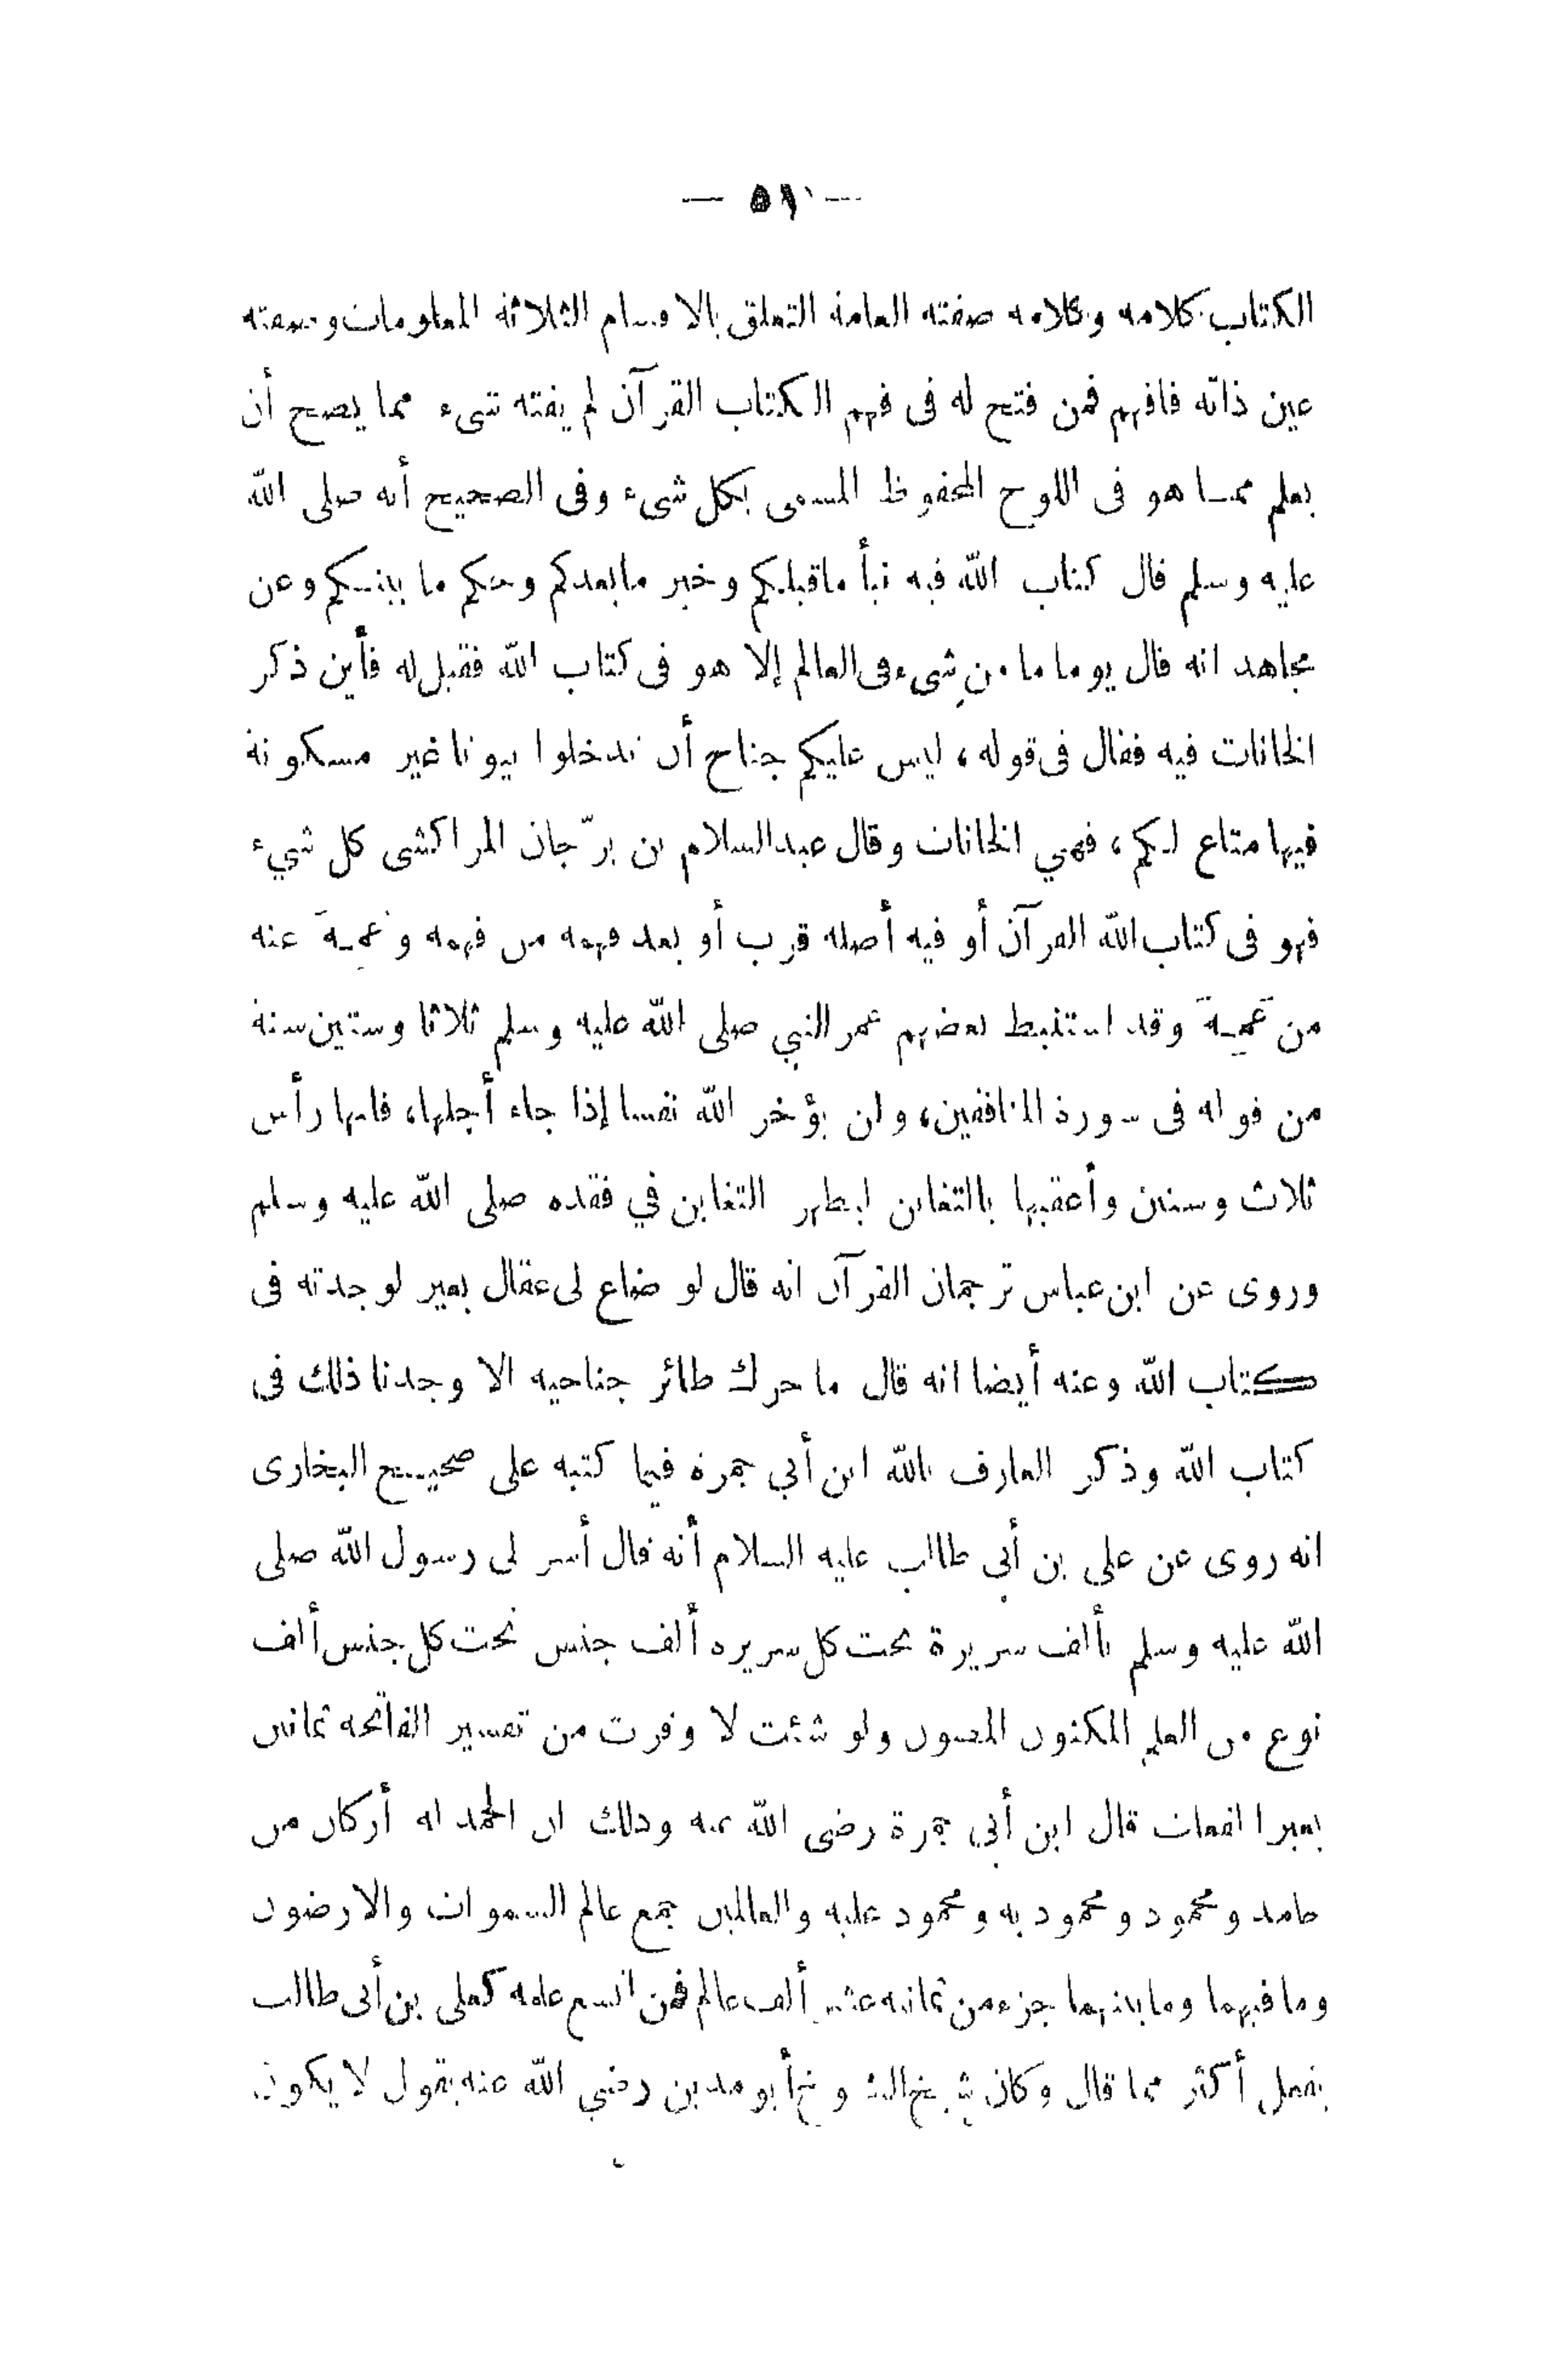 — ٥١ —
الكتاب كلامه وكلامه صفته العامة التعلق بالاقسام الثلاثة المعلومات وصفته
عين ذاته فافهم فمن فتح له فى فهم الكتاب القرآن لم يفته شىء مما يصح أن
يعلم مما هو فى اللوح المحفوظ المسمى بكل شىء وفى الصحيح أنه صلى الله
عليه وسلم قال كتاب الله فيه نبأ ماقبلكم وخبر مابعدكم وحكم ما بينكم وعن
مجاهد انه قال يوما ما من شىء فى العالم إلا هو فى كتاب الله فقيل له فأين ذكر
الخانات فيه فقال فى قوله ، ليس عليكم جناح أن تدخلوا بيوتا غير مسكونة
فيها متاع لكم ، فهي الخانات وقال عبدالسلام بن برّجان المراكشى كل شيء
فهو فى كتاب الله القرآن أو فيه أصله قرب أو بعد فهمه من فهمه وعمه عنه
من عمه وقد استنبط بعضهم عمر النبي صلى الله عليه وسلم ثلاثا وستين سنة
من قوله فى سورة المنافقين، ولن يؤخر الله نفسا إذا جاء أجلها، فانها رأس
ثلاث وستين وأعقبها بالتغابن ليظهر التغابن في فقده صلى الله عليه وسلم
وروى عن ابن عباس ترجمان القرآن انه قال لو ضاع لى عقال بعير لوجدته فى
كتاب الله وعنه أيضا انه قال ما حرك طائر جناحيه الا وجدنا ذلك فى
كتاب الله وذكر العارف بالله ابن أبي جمرة فيما كتبه على صحيح البخارى
انه روى عن على بن أبي طالب عليه السلام أنه قال أسر لى رسول الله صلى
الله عليه وسلم بألف سريرة تحت كل سريره ألف جنس تحت كل جنس ألف
نوع من العلم المكنون المصون ولو شئت لا وفرت من تفسير الفاتحه ثمانين
بعيرا لفعلت قال ابن أبي جمرة رضى الله عنه وذلك ان الحمد له أركان من
حامد ومحمود ومحمود به ومحمود عليه والعالمين جمع عالم السموات والارضون
وما فيهما وما بينهما جزء من ثمانيه عشر ألف عالم فمن اتسع علمه كعلى بن أبى طالب
يفعل أكثر مما قال وكان شيخ الشيوخ أبو مدين رضي الله عنه يقول لا يكون